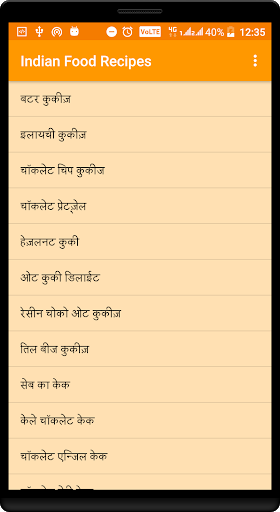 VoLTE 4G 1 2 40% 12:35
Indian Food Recipes
बटर कुकीज़
इलायची कुकीज़
चॉकलेट चिप कुकीज
चॉकलेट प्रेट्ज़ेल
हेज़लनट कुकी
ओट कुकी डिलाईट
रेसीन चोको ओट कुकीज़
तिल बीज कुकीज़
सेब का केक
केले चॉकलेट केक
चॉकलेट एन्जिल केक